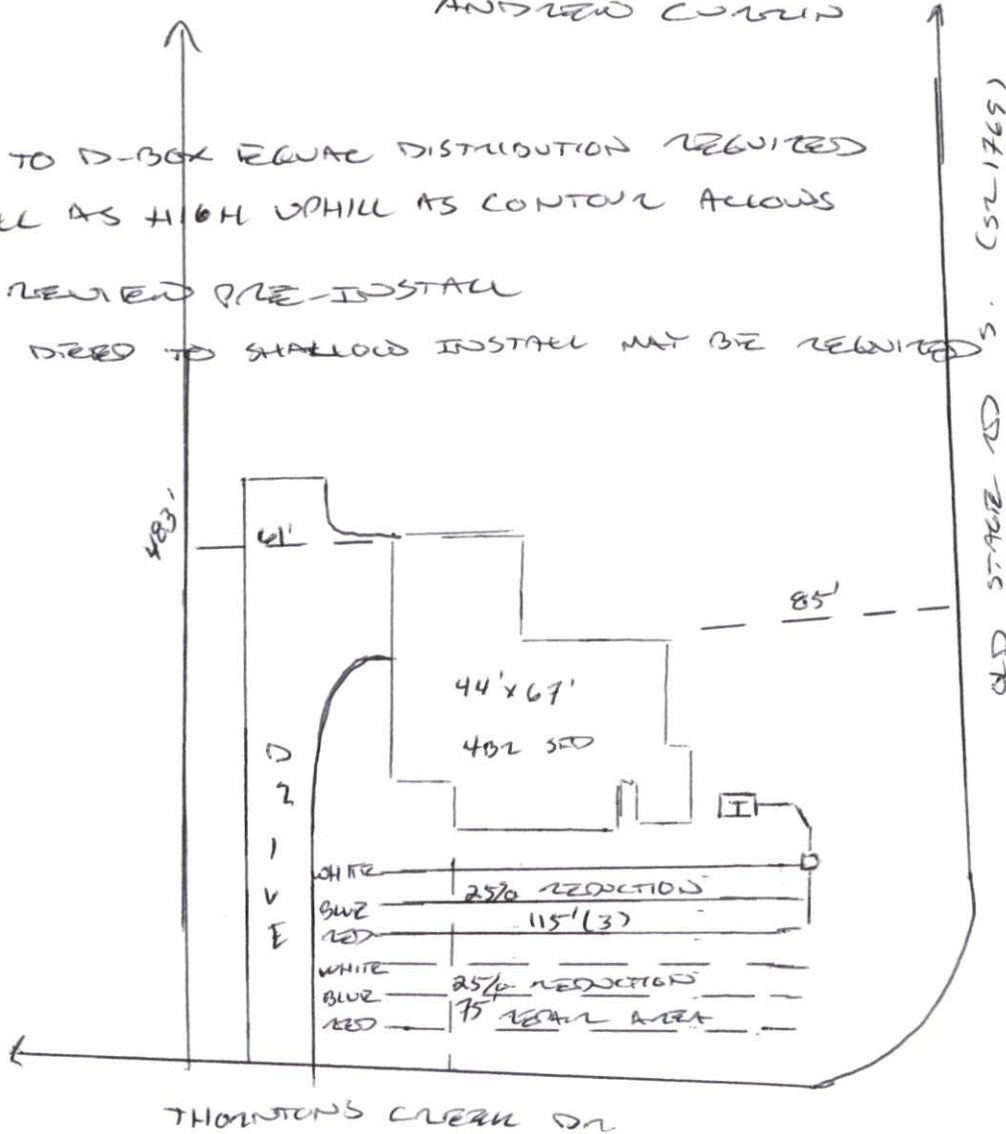 ANDREW CURRIN
TO D-BOX EQUAL DISTRIBUTION REQUIRED
LL AS HIGH UPHILL AS CONTOUR ALLOWS
REVIEW PRE-INSTALL
DEED TO SHALLOW INSTALL MAY BE REQUIRED
OLD STAGE RD S. (SR 1769)
483'
61'
85'
44' x 67'
4BR SFD
DRIVE
WHITE
25% REDUCTION
BLUE
115' (3)
RED
WHITE
25% REDUCTION
BLUE
75 REPAIR AREA
RED
THORNTONS CREEK DR